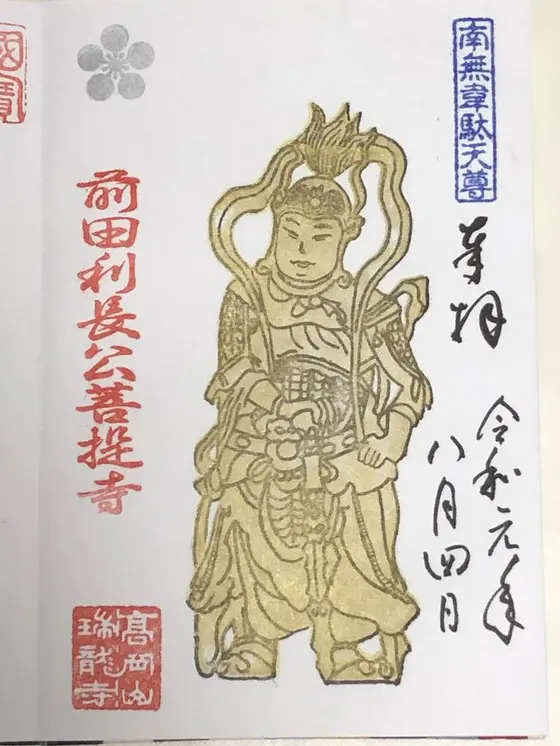 南無韋駄天尊
奉拝
令和元年
八月四日
前田利長公菩提寺
高岡山
瑞龍寺
國寶